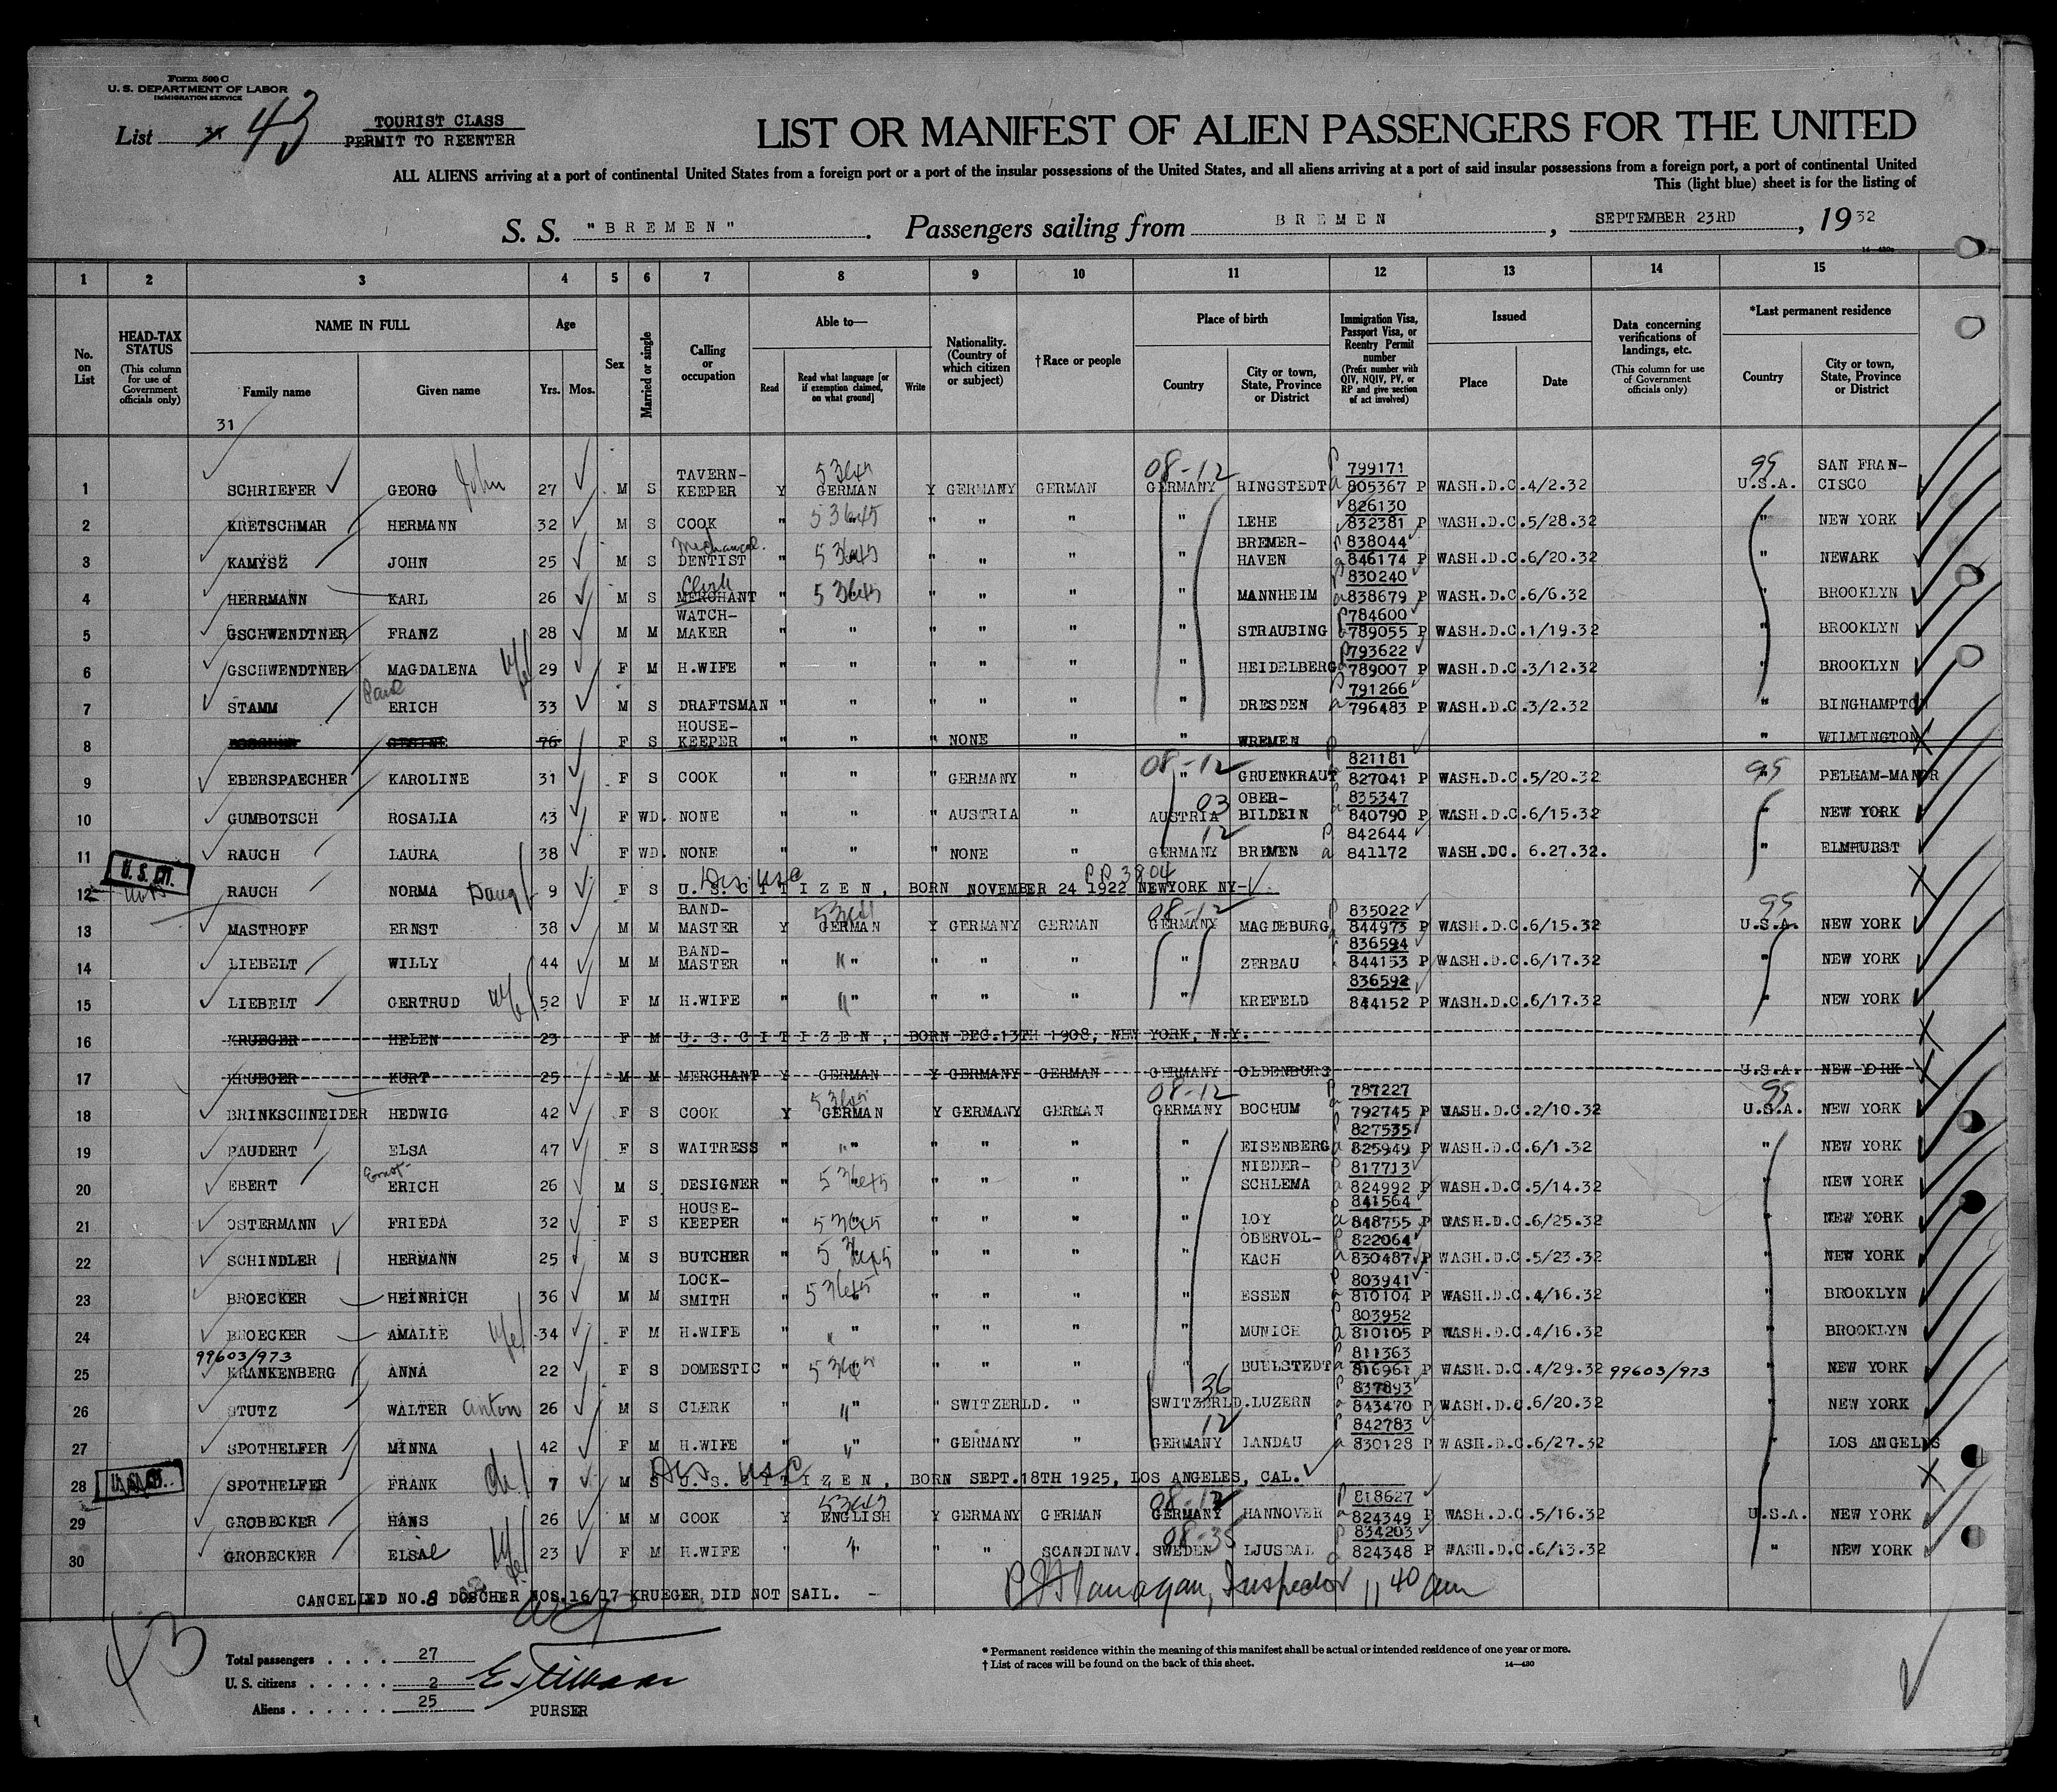 Form 500 C
U. S. DEPARTMENT OF LABOR
IMMIGRATION SERVICE
List 43
TOURIST CLASS
PERMIT TO REENTER
LIST OR MANIFEST OF ALIEN PASSENGERS FOR THE UNITED
ALL ALIENS arriving at a port of continental United States from a foreign port or a port of the insular possessions of the United States, and all aliens arriving at a port of said insular possessions from a foreign port, a port of continental United
This (light blue) sheet is for the listing of
S. S. "BREMEN". Passengers sailing from BREMEN, SEPTEMBER 23RD, 1932
14-430a
1 2 3 4 5 6 7 8 9 10 11 12 13 14 15
No. on List
HEAD-TAX STATUS (This column for use of Government officials only)
NAME IN FULL
Family name
Given name
Age
Yrs. Mos.
Sex
Married or single
Calling or occupation
Able to—
Read
Read what language [or if exemption claimed, on what ground]
Write
Nationality. (Country of which citizen or subject)
†Race or people
Place of birth
Country
City or town, State, Province or District
Immigration Visa, Passport Visa, or Reentry Permit number (Prefix number with QIV, NQIV, PV, or RP and give section of act involved)
Issued
Place
Date
Data concerning verifications of landings, etc. (This column for use of Government officials only)
*Last permanent residence
Country
City or town, State, Province or District
31
1 SCHRIEFER GEORG John 27 M S TAVERN-KEEPER Y GERMAN Y GERMANY GERMAN 08-12 GERMANY RINGSTEDT 799171 805367 P WASH.D.C. 4/2.32 95 U.S.A. SAN FRAN-CISCO
2 KRETSCHMAR HERMANN 32 M S COOK " 53645 " " " " LEHE 826130 832381 P WASH.D.C. 5/28.32 " NEW YORK
3 KAMYSZ JOHN 25 M S Mechanical DENTIST " 53645 " " " " BREMER-HAVEN 838044 846174 P WASH.D.C. 6/20.32 " NEWARK
4 HERRMANN KARL 26 M S Clerk MERCHANT " 53645 " " " " MANNHEIM 830240 838679 P WASH.D.C. 6/6.32 " BROOKLYN
5 GSCHWENDTNER FRANZ 28 M M WATCH-MAKER " " " " " " STRAUBING 784600 789055 P WASH.D.C. 1/19.32 " BROOKLYN
6 GSCHWENDTNER MAGDALENA 29 F M H.WIFE " " " " " " HEIDELBERG 793622 789007 P WASH.D.C. 3/12.32 " BROOKLYN
7 STAMM ERICH 33 M S DRAFTSMAN " " " " " " DRESDEN 791266 796483 P WASH.D.C. 3/2.32 " BINGHAMPTON
8 76 F S HOUSE-KEEPER " " " NONE " " WREMEN " WILMINGTON
9 EBERSPAECHER KAROLINE 31 F S COOK " " " GERMANY " 08-12 " GRUENKRAUT 821181 827041 P WASH.D.C. 5/20.32 95 " PELHAM-MANOR
10 GUMBOTSCH ROSALIA 43 F WD. NONE " " " AUSTRIA " 03 AUSTRIA OBER-BILDEIN 835347 840790 P WASH.D.C. 6/15.32 " NEW YORK
11 RAUCH LAURA 38 F WD. NONE " " " NONE " 12 GERMANY BREMEN 842644 841172 WASH.DC. 6.27.32. " ELMHURST
U.S. CIT.
12 RAUCH NORMA Daug 9 F S U.S.CITIZEN, BORN NOVEMBER 24 1922 NEWYORK NY-
13 MASTHOFF ERNST 38 M M BAND-MASTER Y GERMAN Y GERMANY GERMAN 08-12 GERMANY MAGDEBURG 835022 844973 P WASH.D.C. 6/15.32 95 U.S.A. NEW YORK
14 LIEBELT WILLY 44 M M BAND-MASTER " " " " " " ZERBAU 836594 844153 P WASH.D.C. 6/17.32 " NEW YORK
15 LIEBELT GERTRUD 52 F M H.WIFE " " " " " " KREFELD 836592 844152 P WASH.D.C. 6/17.32 " NEW YORK
16 KRUEGER HELEN 23 F M U.S.CITIZEN, BORN DEC.13TH 1908, NEW YORK, N.Y.
17 KRUEGER KURT 25 M M MERCHANT Y GERMAN Y GERMANY GERMAN GERMANY OLDENBURG U.S.A. NEW YORK
18 BRINKSCHNEIDER HEDWIG 42 F S COOK Y GERMAN Y GERMANY GERMAN 08-12 GERMANY BOCHUM 787227 792745 P WASH.D.C. 2/10.32 95 U.S.A. NEW YORK
19 PAUDERT ELSA 47 F S WAITRESS " " " " " " EISENBERG 827535 825949 P WASH.D.C. 6/1.32 " NEW YORK
20 EBERT Ernst ERICH 26 M S DESIGNER " " " " " NIEDER-SCHLEMA 817713 824992 P WASH.D.C. 5/14.32 " NEW YORK
21 OSTERMANN FRIEDA 32 F S HOUSE-KEEPER " " " " " LOY 841564 848755 P WASH.D.C. 6/25.32 " NEW YORK
22 SCHINDLER HERMANN 25 M S BUTCHER " " " " " OBERVOL-KACH 822064 830487 P WASH.D.C. 5/23.32 " NEW YORK
23 BROECKER HEINRICH 36 M M LOCK-SMITH " " " " " ESSEN 803941 810104 P WASH.D.C. 4/16.32 " BROOKLYN
24 BROECKER AMALIE 34 F M H.WIFE " " " " " " MUNICH 803952 810105 P WASH.D.C. 4/16.32 " BROOKLYN
99603/973
25 KRANKENBERG ANNA 22 F S DOMESTIC " " " " " BULLSTEDT 811363 816961 P WASH.D.C. 4/29.32 99603/973 " NEW YORK
26 STUTZ WALTER Anton 26 M S CLERK " " " SWITZERLD. " 36 SWITZERLD. LUZERN 837893 843470 P WASH.D.C. 6/20.32 " NEW YORK
27 SPOTHELFER MINNA 42 F M H.WIFE " " " GERMANY " 12 GERMANY LANDAU 842783 830128 P WASH.D.C. 6/27.32 " LOS ANGELES
28 SPOTHELFER FRANK ch 7 M S U.S.CITIZEN, BORN SEPT.18TH 1925, LOS ANGELES, CAL.
29 GROBECKER HANS 26 M M COOK Y ENGLISH Y GERMANY GERMAN 08-12 GERMANY HANNOVER 818627 824349 P WASH.D.C. 5/16.32 U.S.A. NEW YORK
30 GROBECKER ELSA 23 F M H.WIFE " " " " SCANDINAV. 08-35 SWEDEN LJUSDAL 834203 824348 P WASH.D.C. 6/13.32 " NEW YORK
CANCELLED NO.8 DOSCHER NOS.16/17 KRUEGER DID NOT SAIL. -
Flanagan, Inspector 11 40 am
43
Total passengers . . . . 27
U. S. citizens . . . . . 2
Aliens . . . . . . 25
PURSER
* Permanent residence within the meaning of this manifest shall be actual or intended residence of one year or more.
† List of races will be found on the back of this sheet.
14—430